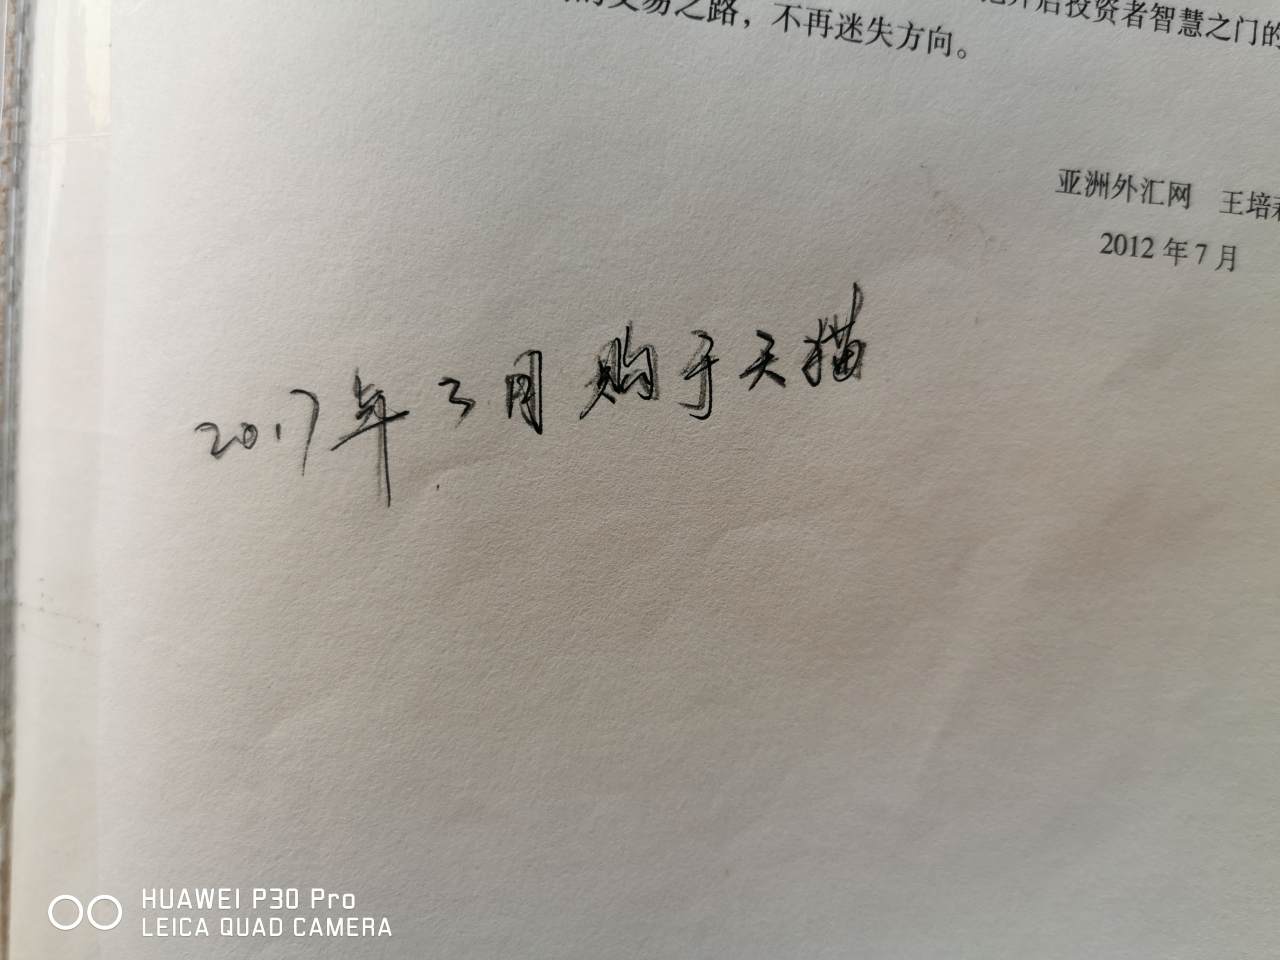 开启投资者智慧之门的
交易之路，不再迷失方向。
亚洲外汇网 王培
2012年7月
2017年3月购于天猫
HUAWEI P30 Pro
LEICA QUAD CAMERA